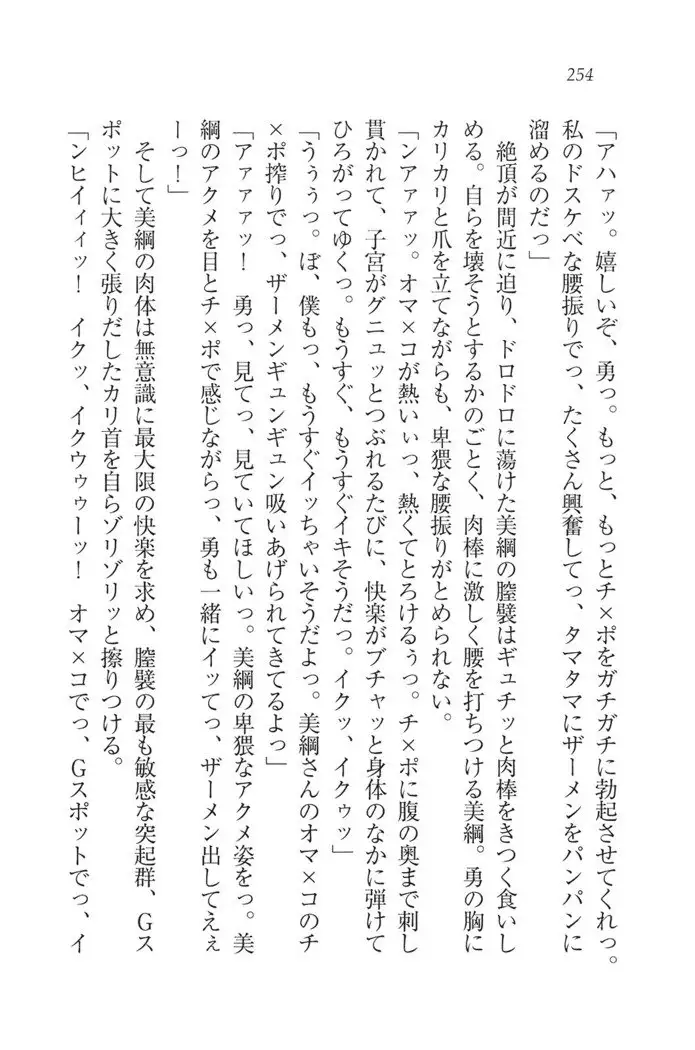 254
「アハァッ。嬉しいぞ、勇っ。もっと、もっとチ×ポをガチガチに勃起させてくれっ。
私のドスケベな腰振りでっ、たくさん興奮してっ、タマタマにザーメンをパンパンに
溜めるのだっ」
絶頂が間近に迫り、ドロドロに蕩けた美綱の膣襞はギュチッと肉棒をきつく食いし
める。自らを壊そうとするかのごとく、肉棒に激しく腰を打ちつける美綱。勇の胸に
カリカリと爪を立てながらも、卑猥な腰振りがとめられない。
「ンアァァッ。オマ×コが熱いぃっ、熱くてとろけるぅっ。チ×ポに腹の奥まで刺し
貫かれて、子宮がグニュッとつぶれるたびに、快楽がブチャッと身体のなかに弾けて
ひろがってゆくっ。もうすぐ、もうすぐイキそうだっ。イクッ、イクゥッ」
「うぅぅっ。ぼ、僕もっ、もうすぐイッちゃいそうだよっ。美綱さんのオマ×コのチ
×ポ搾りでっ、ザーメンギュンギュン吸いあげられてきてるよっ」
「アァァァッ！　勇っ、見てっ、見ていてほしいっ。美綱の卑猥なアクメ姿をっ。美
綱のアクメを目とチ×ポで感じながらっ、勇も一緒にイッてっ、ザーメン出してえぇ
ーっ！」
そして美綱の肉体は無意識に最大限の快楽を求め、膣襞の最も敏感な突起群、Gス
ポットに大きく張りだしたカリ首を自らゾリゾリッと擦りつける。
「ンヒイィィッ！　イクッ、イクウゥゥーッ！　オマ×コでっ、Gスポットでっ、イ